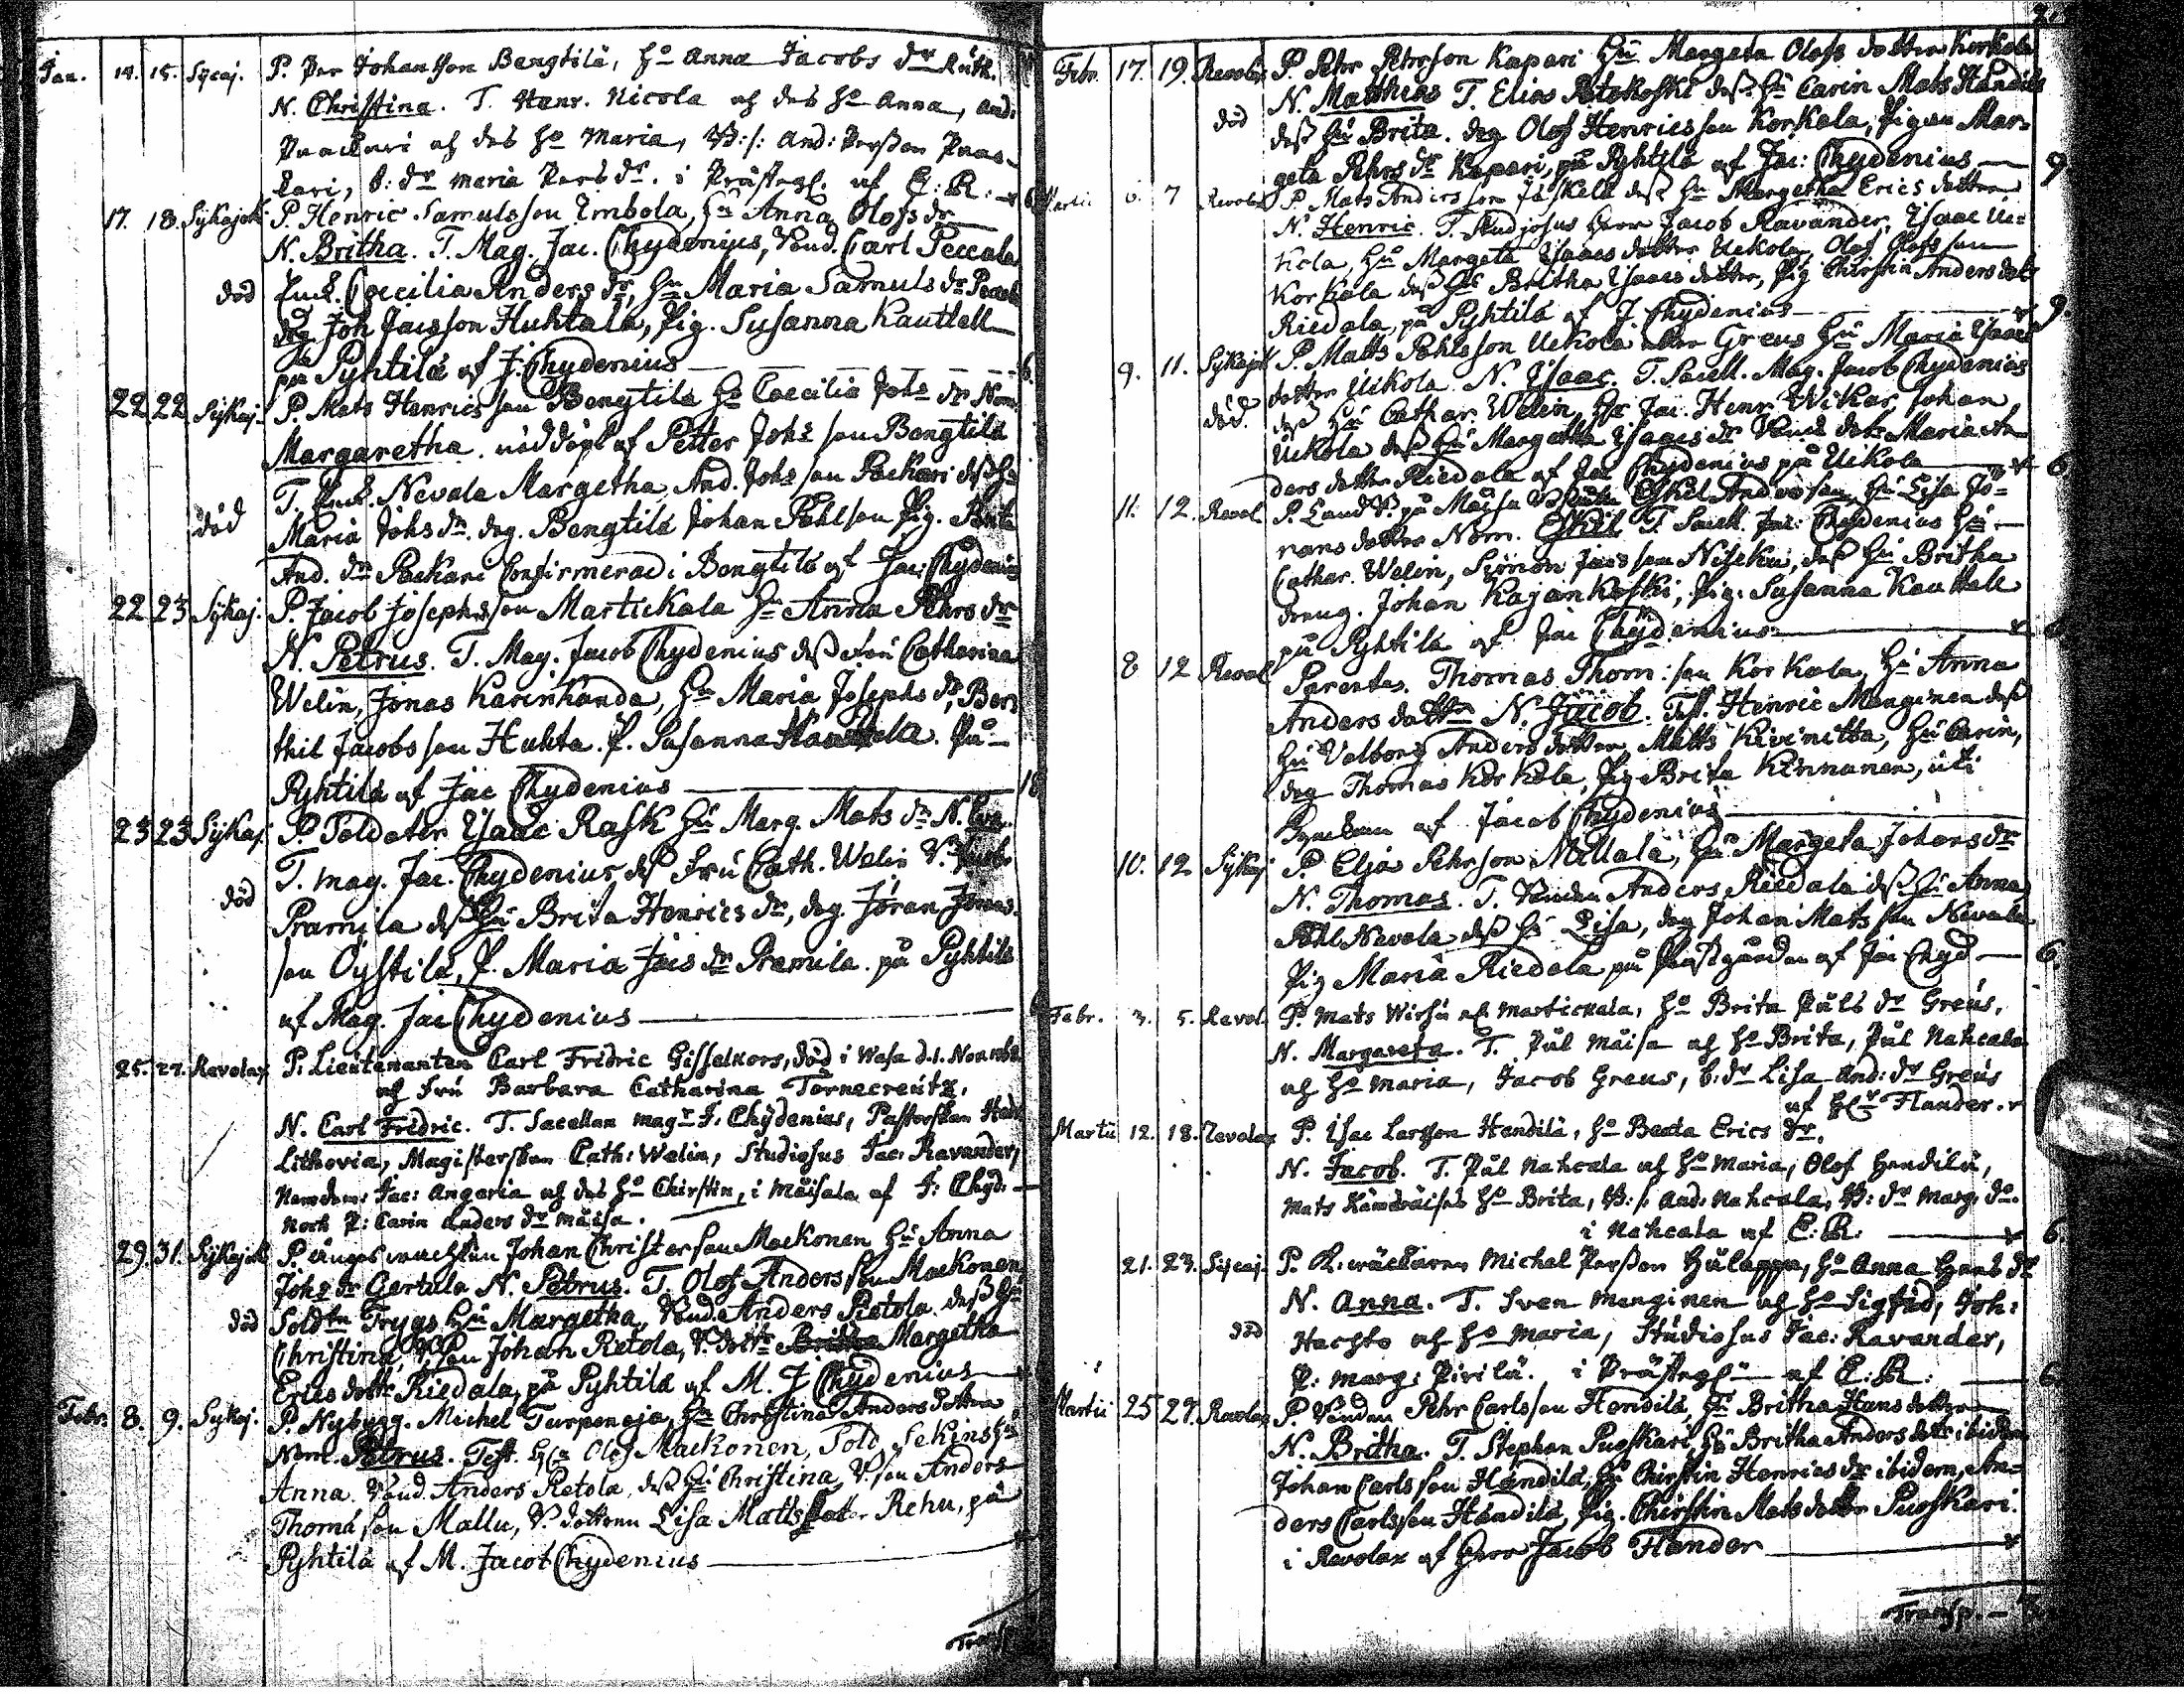 Jan. 14. 15. Sycaj. P. Per Johansson Bengtilä, ho Anna Jacobs dr Ruth.
N. Christina. T. Henr. Nicola och des ho Anna, And:
Paackari och des ho Maria, And: Persson Paac-
kari, Maria Pers dr. i Prästeg. af C: R:
17. 18. Sykajok P. Henric Samulsson Embola, hu Anna Olofs dr
N. Britha. T. Mag. Jac. Chydenius, Bond. Carl Peccala
död Enk. Caecilia Anders dr, hu Maria Samuls dr
drg Joh Jacsson Huhtala, Pig. Susanna Kauttell
på Pyhtilä af J. Chydenius
22 22 Sykaj. P. Mats Henricsson Bengtilä hu Caecilia Johs dr Nom
Margaretha. nöddöpt af Petter Johs son Bengtilä
T. Enk. Nevala Margetha, And. Johs son Packari dess hu
död Maria Johs dr. drg. Bengtilä Johan Påhlson Pig. Brita
And. dr Packari Confirmerad i Bengtilä af Jac. Chydenius
22 23 Sykaj. P. Jacob Josephsson Martickala hu Anna Pehrs dr
N. Petrus. T. Mag. Jacob Chydenius dess fru Catharina
Welin, Jonas Karinkanda, hu Maria Josephs dr, Ber-
thil Jacobsson Huhta. P. Susanna På
Pyhtilä af Jac Chydenius 18
23 23 Sykaj. P. Soldaten Isaac Rask hu Marg. Mats dr N. Eva.
T. Mag. Jac. Chydenius dess Fru Cath. Welin
död Pramila dess hu Brita Henrics dr, drg. Jöran Jonas
son Öystilä, P. Maria Jacs dr Pramila. på Pyhtilä
af Mag. Jac Chydenius
25. 27. Revolax P. Lieutenanten Carl Fridric Gisselkors, död i Wasa d. 1. Nov
och Fru Barbara Catharina Tornecreutz.
N. Carl Fridric. T. Sacellan mag J. Chydenius, Pastorskan
Lithovia, Magisterskan Cath: Welin, Studiosus Jac: Ravander,
Nemdem: Jac: Angeria och des ho Chirstin, i Mäisala af J: Chyd:
Noch P: Carin Anders dr Mäisa.
29. 31. Sykajok P. Johan Christersson Mackonen hu Anna
Johs dr Gertula N. Petrus. T. Olof Andersson Mackonen
död Soldtn Trygs hu Margetha, Bond. Anders Pietola dess hu
Christina, Johan Rietola, Britha Margetha
Erics dottr Riedala, på Pyhtilä af M. J Chydenius
Febr. 8. 9. Sykaj. P. Nybygg. Michel Turpenoja, hu Christina Anders dotter
Nom. Petrus. Test. Olof Mackonen, Sold Sekins hu
Anna. Bond. Anders Rietola, dess hu Christina, Anders
Thomasson Mallu, dottren Lisa Matts dotr Rehu, på
Pyhtilä af M. Jacob Chydenius
Transp
Febr. 17. 19. Revolax P. Pehr Pehrson Kapari hu Margeta Olofs dotter Korkola
N. Matthias T. Elias Petekoski dess hu Carin Mats Händilä
död dess hu Brita. drg Olof Henricsson Korkala, Pigan Mar-
geta Pehrs dr Kapari, på Pyhtilä af Jac: Chydenius 9
Martii 6. 7 Revolx P. Mats Andersson Jäskelä dess hu Margetha Erics dotter
N. Henric. T. Studiosus Herr Jacob Ravander, Isaac Ue-
kola, hu Margeta Isaacs dotter Uekola, Olof Olofsson
Korkala dess hu Britha Isaacs dotter, Pig Chirstin Anders dotr
Riedala, på Pyhtilä af J Chydenius 9.
9. 11. Sykajok P. Matts Påhlsson Uekola eller Greus hu Maria Isaacs
dotter Uekola. N. Isaac. T. Sacell. Mag. Jacob Chydenius
död. dess hu Cathar Welin, Jac. Henr Wikar, Johan
Uekola dess hu Margetha Isaacs dr Bond dotr Maria An-
ders dotter Riedala af Jac Chydenius på Uekola 6
11. 12. Revol. P. LandB. på Mäisa Eskil Andersson, hu Lisa Jö-
rans dotter Nom. Eskil T. Sacell. Jac: Chydenius hu
Cathar. Welin, Simon Jacsson Nisckui, dess hu Britha
dreng. Johan Kajankoski, Pig. Susanna Kauttell
på Pyhtilä af Jac Chydenius
8 12 Revol Parentes. Thomas Thom: son Korkala, hu Anna
Anders dotter N. Jacob. Test. Henric Manginen dess
hu Valborg Anders dotter, Matts Kivinitta, hu Carin,
drg Thomas Korkola, Pig Brita Kinnanen, uti
af Jacob Chydenius
10. 12 Sykaj P. Elia Pehrson Mellala, hu Margeta Johans dr
N. Thomas. T. Bonden Anders Riedala dess hu Anna
Påhl Nevala dess hu Lisa, drg Johan Matsson Nevala
Pig Maria Riedola på Prästgården af Jac Chyd 6.
Febr. 3. 5. Revol. P. Mats Wirsu al Martickala, ho Brita Påls dr Greus,
N. Margareta. T. Pål Mäisa och ho Brita, Pål Nahcala
och ho Maria, Jacob Greus, b: dr Lisa And: dr Greus
af Flander.
Martii 12. 18. Revolax P. Isac Larsson Hendilä, ho Beata Erics dr.
N. Jacob. T. Pål Nahcala och ho Maria, Olof Hendilä,
Mats ho Brita, And: Nahcala, dr Marg. do.
i Nahcala af C: R: 6
21. 23. Sycaj. P. Michel Persson Hulappa, ho Anna Hans dr
N. Anna. T. Sven Manginen och ho Sigfrid, Joh:
död Hachto och ho Maria, Studiosus Jac: Ravander,
P: Marg: Pirilä. i af C: R: 6
Martii 25 27. Revolax P. Bonden Pehr Carlsson Hendilä, hu Britha Hans dotter
N. Britha. T. Stephan Puoskari, hu Britha Anders dottr ibidem
Johan Carlsson Händilä, hu Chirstin Henrics dr ibidem, An-
ders Carlsson Händilä, Pig. Chirstin Mats dottr Puoskari.
i Revolax af Herr Jacob Flander
Transp.